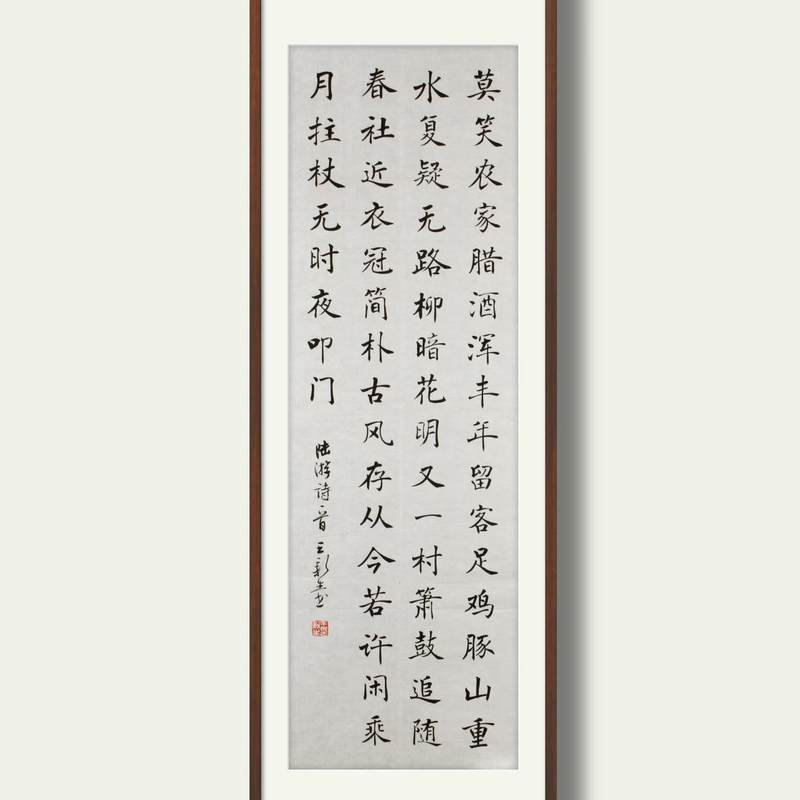 莫笑农家腊酒浑丰年留客足鸡豚山重
水复疑无路柳暗花明又一村箫鼓追随
春社近衣冠简朴古风存从今若许闲乘
月拄杖无时夜叩门
陆游诗一首